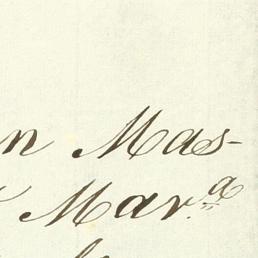 n Mas-
Mar.ª